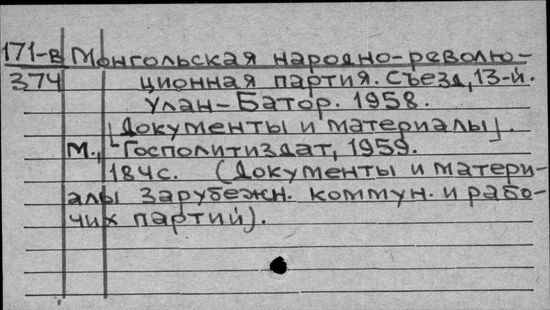 171-в Монгольская народно-револю-
374 ционная партия. Съезд, 13-й.
Улан-Батор. 1958.
[Документы и материалы].
М., Госполитиздат, 1959.
184с. (Документы и матери-
алы зарубежн. коммун. и рабо-
чих партий).